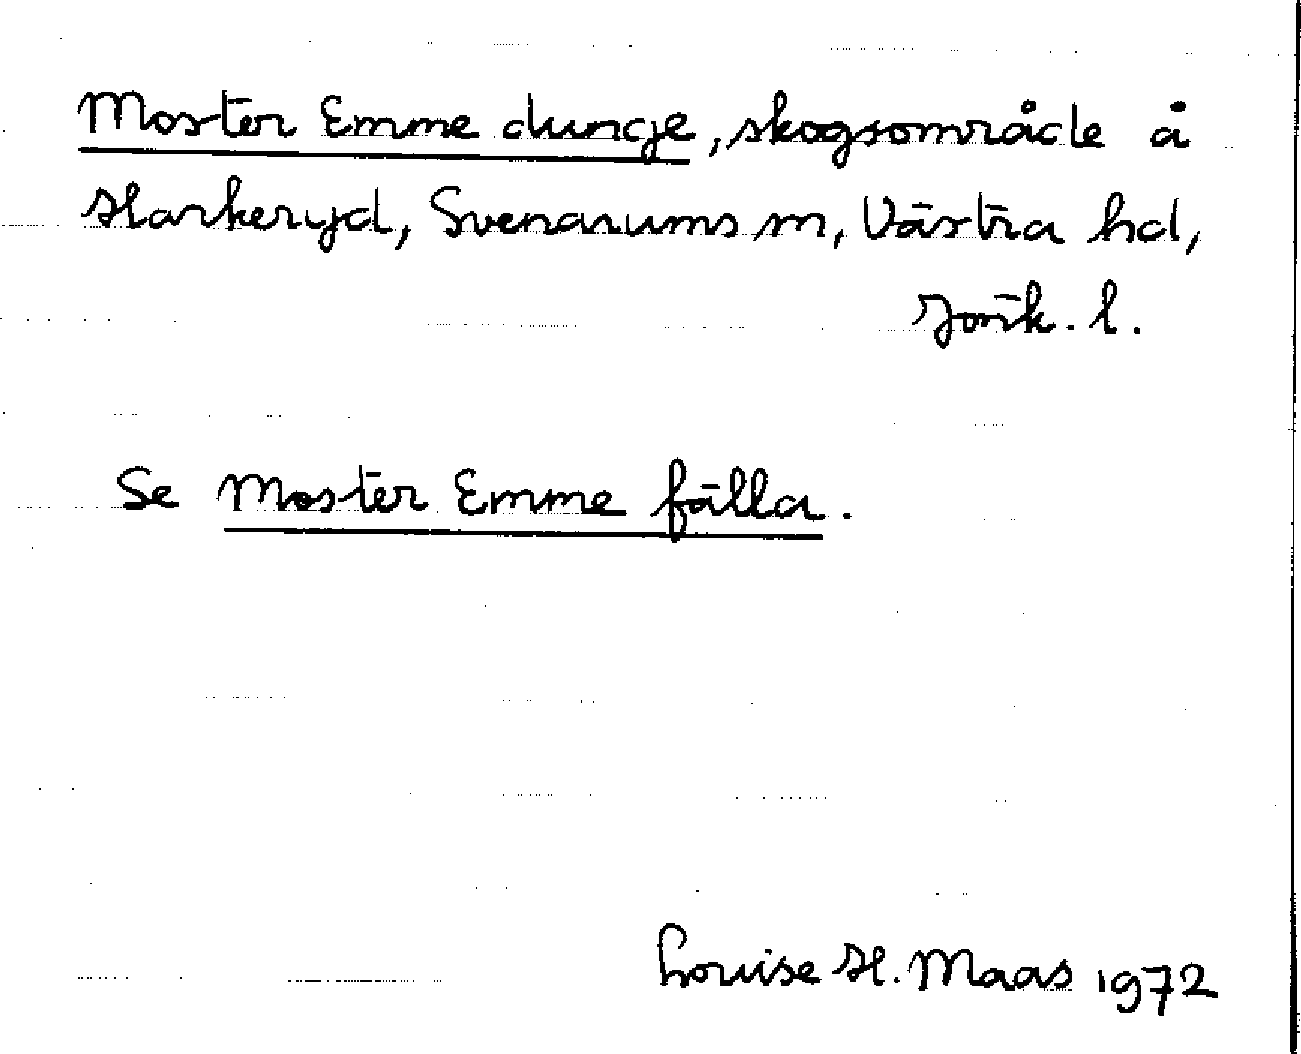 Moster Emme dunge, skogsområde å
Harkeryd, Svenarums sn, Västra hd,
Jönk. l.
Se Moster Emme fälla.
Louise H. Maas 1972